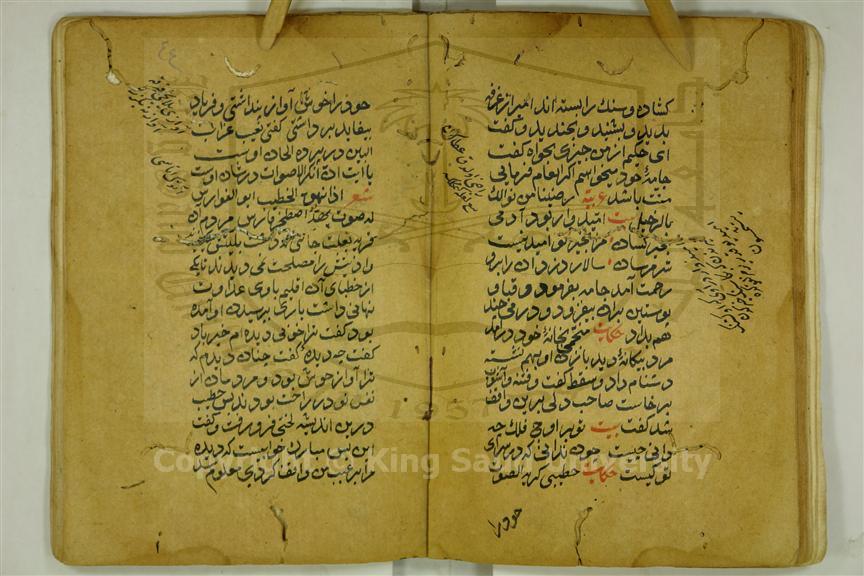 کشاده و سنك را بسته اند امیر از غرفه
بدید و بشنید و بخندید و گفت
ای حکیم از من چیزی بخواه گفت
جامهٔ خود میخواهم اگر انعام فرمائی
منت باشد عربیه رضینا من نوالك
بالرحیل بیت امیدوار بود آدمی
بخیر کسان مرا بخیر تو امید نیست
شر مرسان سالار دزدان را برو
رحمت آمد جامه بفرمود و قبا و
پوستین بران بیفزود و درمی چند
هم بداد حکایت منجمی بخانهٔ خود درآمد
مرد بیکانهٔ دید با زن او بهم نشسته
دشنام داد و سقط گفت و فتنه و آشوب
برخاست صاحب دلی برین واقف
شد گفت بیت تو بر اوج فلك چه
دانی چیست چون ندانی که در سرای
تو کیست حکایت خطیبی کریه الصوت
خود را
خود را خوش آواز پنداشتی و فریاد
بیفایده برداشتی گفتی نعیب غراب
البین در پرده الحان اوست
یا آیت ان انکر الاصوات در شان اوست
شعر اذا نهق الخطیب ابو الفوارس
له صوت یهد اصطخر فارس مردمان
قریه بعلت جاهی که داشت بلیتش
واذیتش را مصلحت نمی دیدند تا یکی
از خطبای آن اقلیم با وی عداوت
نهانی داشت باری بپرسیدن او آمده
بود گفت ترا خوابی دیده ام خیر باد
گفت چه دیده گفت چنان دیدم که
ترا آواز خوش بود و مردمان از
نفس تو در راحت بودند خطیب
درین اندیشه لختی فرو رفت و گفت
این بس مبارك خوابیست که دیده
مرا بر عیب من واقف کردی معلوم شد
Copyright © King Saud University
1957